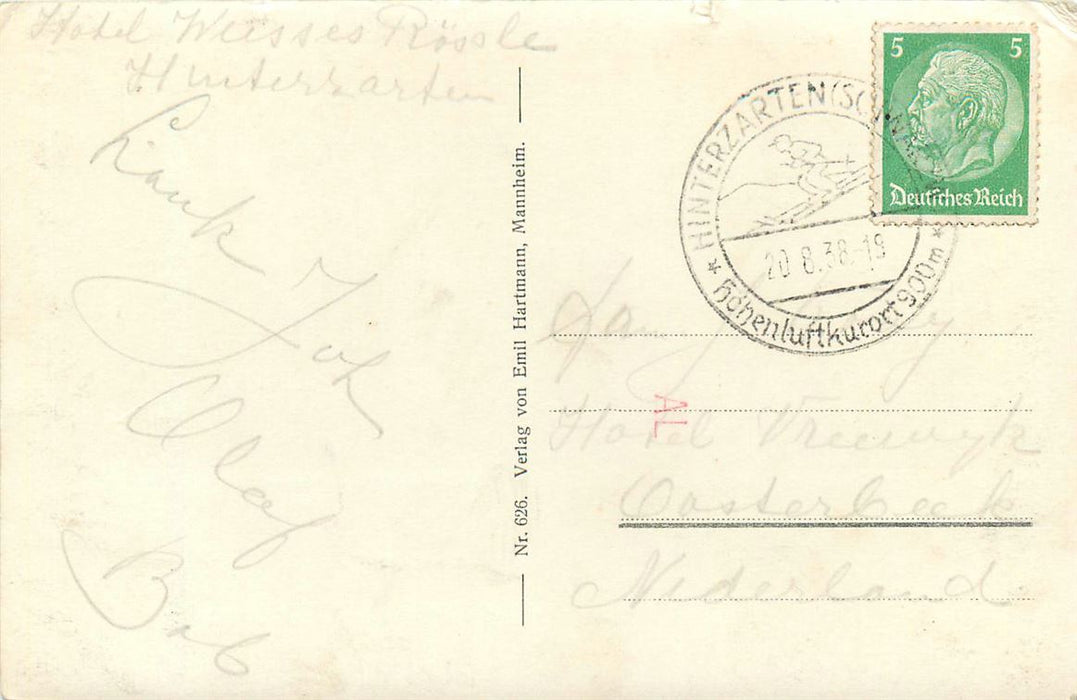 Hotel Weisses Rössle
Hinterzarten
Joh
Olaf
Bob
Nr. 626. Verlag von Emil Hartmann, Mannheim.
5 5
Deutsches Reich
HINTERZARTEN (SCHWARZW
20.8.38.-19
* Höhenluftkurort 900m *
AL
Hotel Vreewyk
Oosterbeek
Nederland